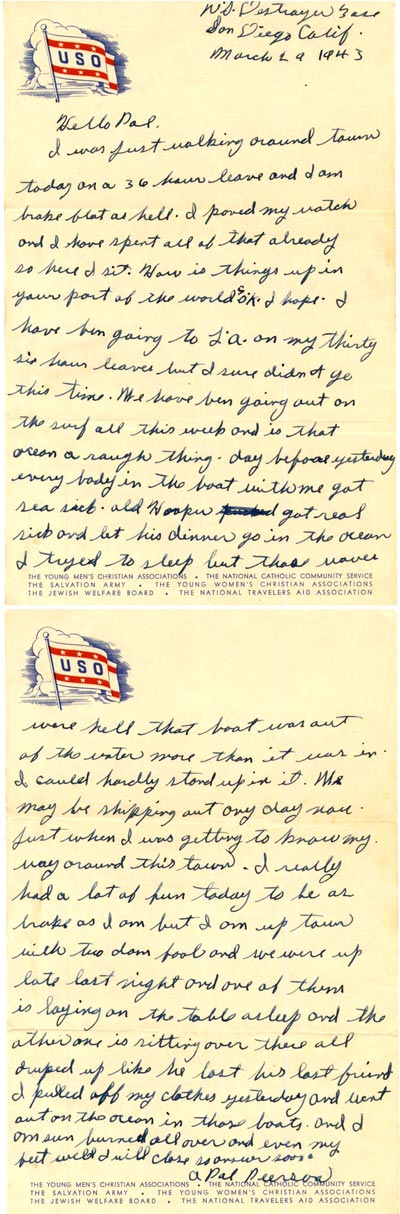 USO
US Destroyer Base
San Diego Calif.
March 29 1943
Hello Pal.
I was just walking around town
today on a 36 hour leave and I am
broke blat as hell. I poved my watch
and I have spent all of that already
so here I sit. How is things up in
your part of the world O.K. I hope. I
have ben going to L.A. on my thirty
six hour leaves but I sure didnt go
this time. We have ben going out on
the surf all this week and is that
ocean a rough thing. day before yesterday
every body in the boat with me got
sea sick. old Hooper got real
sick and let his dinner go in the ocean
I tryed to sleep but those waves
THE YOUNG MEN'S CHRISTIAN ASSOCIATIONS • THE NATIONAL CATHOLIC COMMUNITY SERVICE
THE SALVATION ARMY • THE YOUNG WOMEN'S CHRISTIAN ASSOCIATIONS
THE JEWISH WELFARE BOARD • THE NATIONAL TRAVELERS AID ASSOCIATION
USO
were hell that boat was out
of the water more than it was in.
I could hardly stand up in it. We
may be shipping out any day now.
just when I was getting to know my
way around this town. I really
had a lot of fun today to be as
broke as I am but I am up town
with two dam fool and we were up
late last night and one of them
is laying on the table asleep and the
other one is sitting over there all
druped up like he lost his last friend
I pulled off my clothes yesterday and went
out on the ocean in those boats. and I
am sun burned all over and even my
feet well I will close so answer soon
a Pal
THE YOUNG MEN'S CHRISTIAN ASSOCIATIONS • THE NATIONAL CATHOLIC COMMUNITY SERVICE
THE SALVATION ARMY • THE YOUNG WOMEN'S CHRISTIAN ASSOCIATIONS
THE JEWISH WELFARE BOARD • THE NATIONAL TRAVELERS AID ASSOCIATION